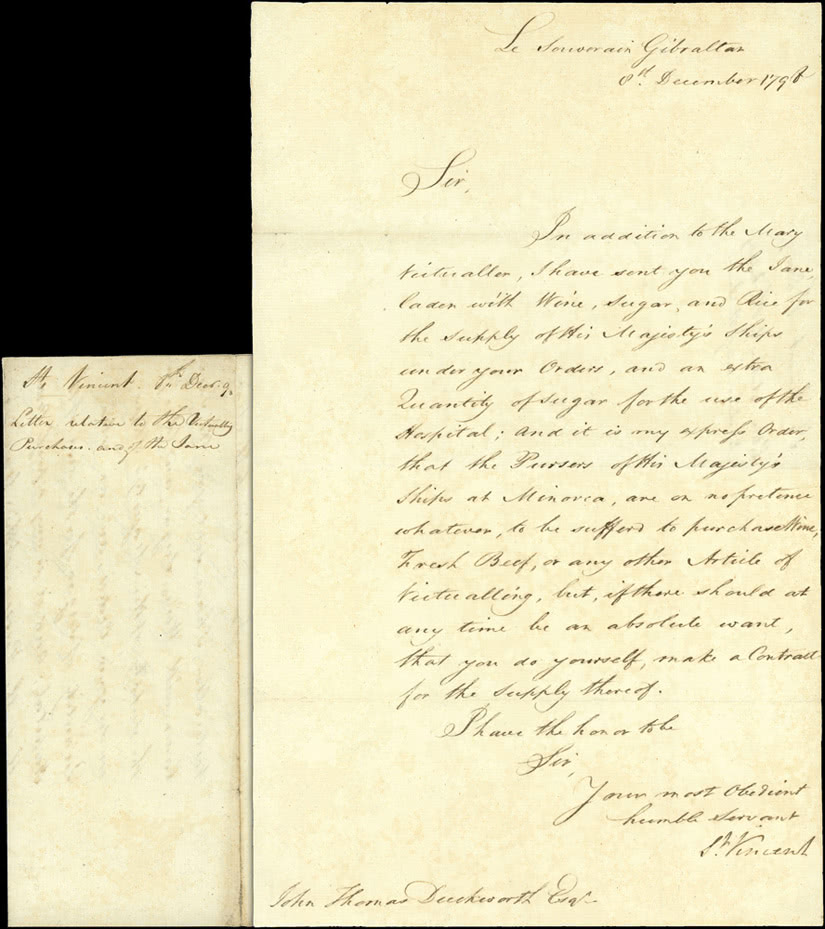 Le Souverain Gibraltar
8th. December 1798
Sir,
In addition to the Mary
Victualler, I have sent you the Jane,
laden with Wine, Sugar, and Rice for
the Supply of His Majesty's Ships
under your Orders, and an extra
Quantity of Sugar for the use of the
Hospital; And it is my express Order,
that the Pursers of His Majesty's
Ships at Minorca, are on no pretence
whatever, to be sufferd to purchase Wine,
Fresh Beef, or any other Article of
Victualling, but, if there should at
any time be an absolute want,
that you do yourself, make a Contract
for the Supply thereof.
I have the honor to be
Sir,
Your most Obedient
humble Servant
St. Vincent
John Thomas Duckworth Esqr.
St. Vincent 8th Decr. 9
Letter relative to the Victuallg
Purchase and of the Jane